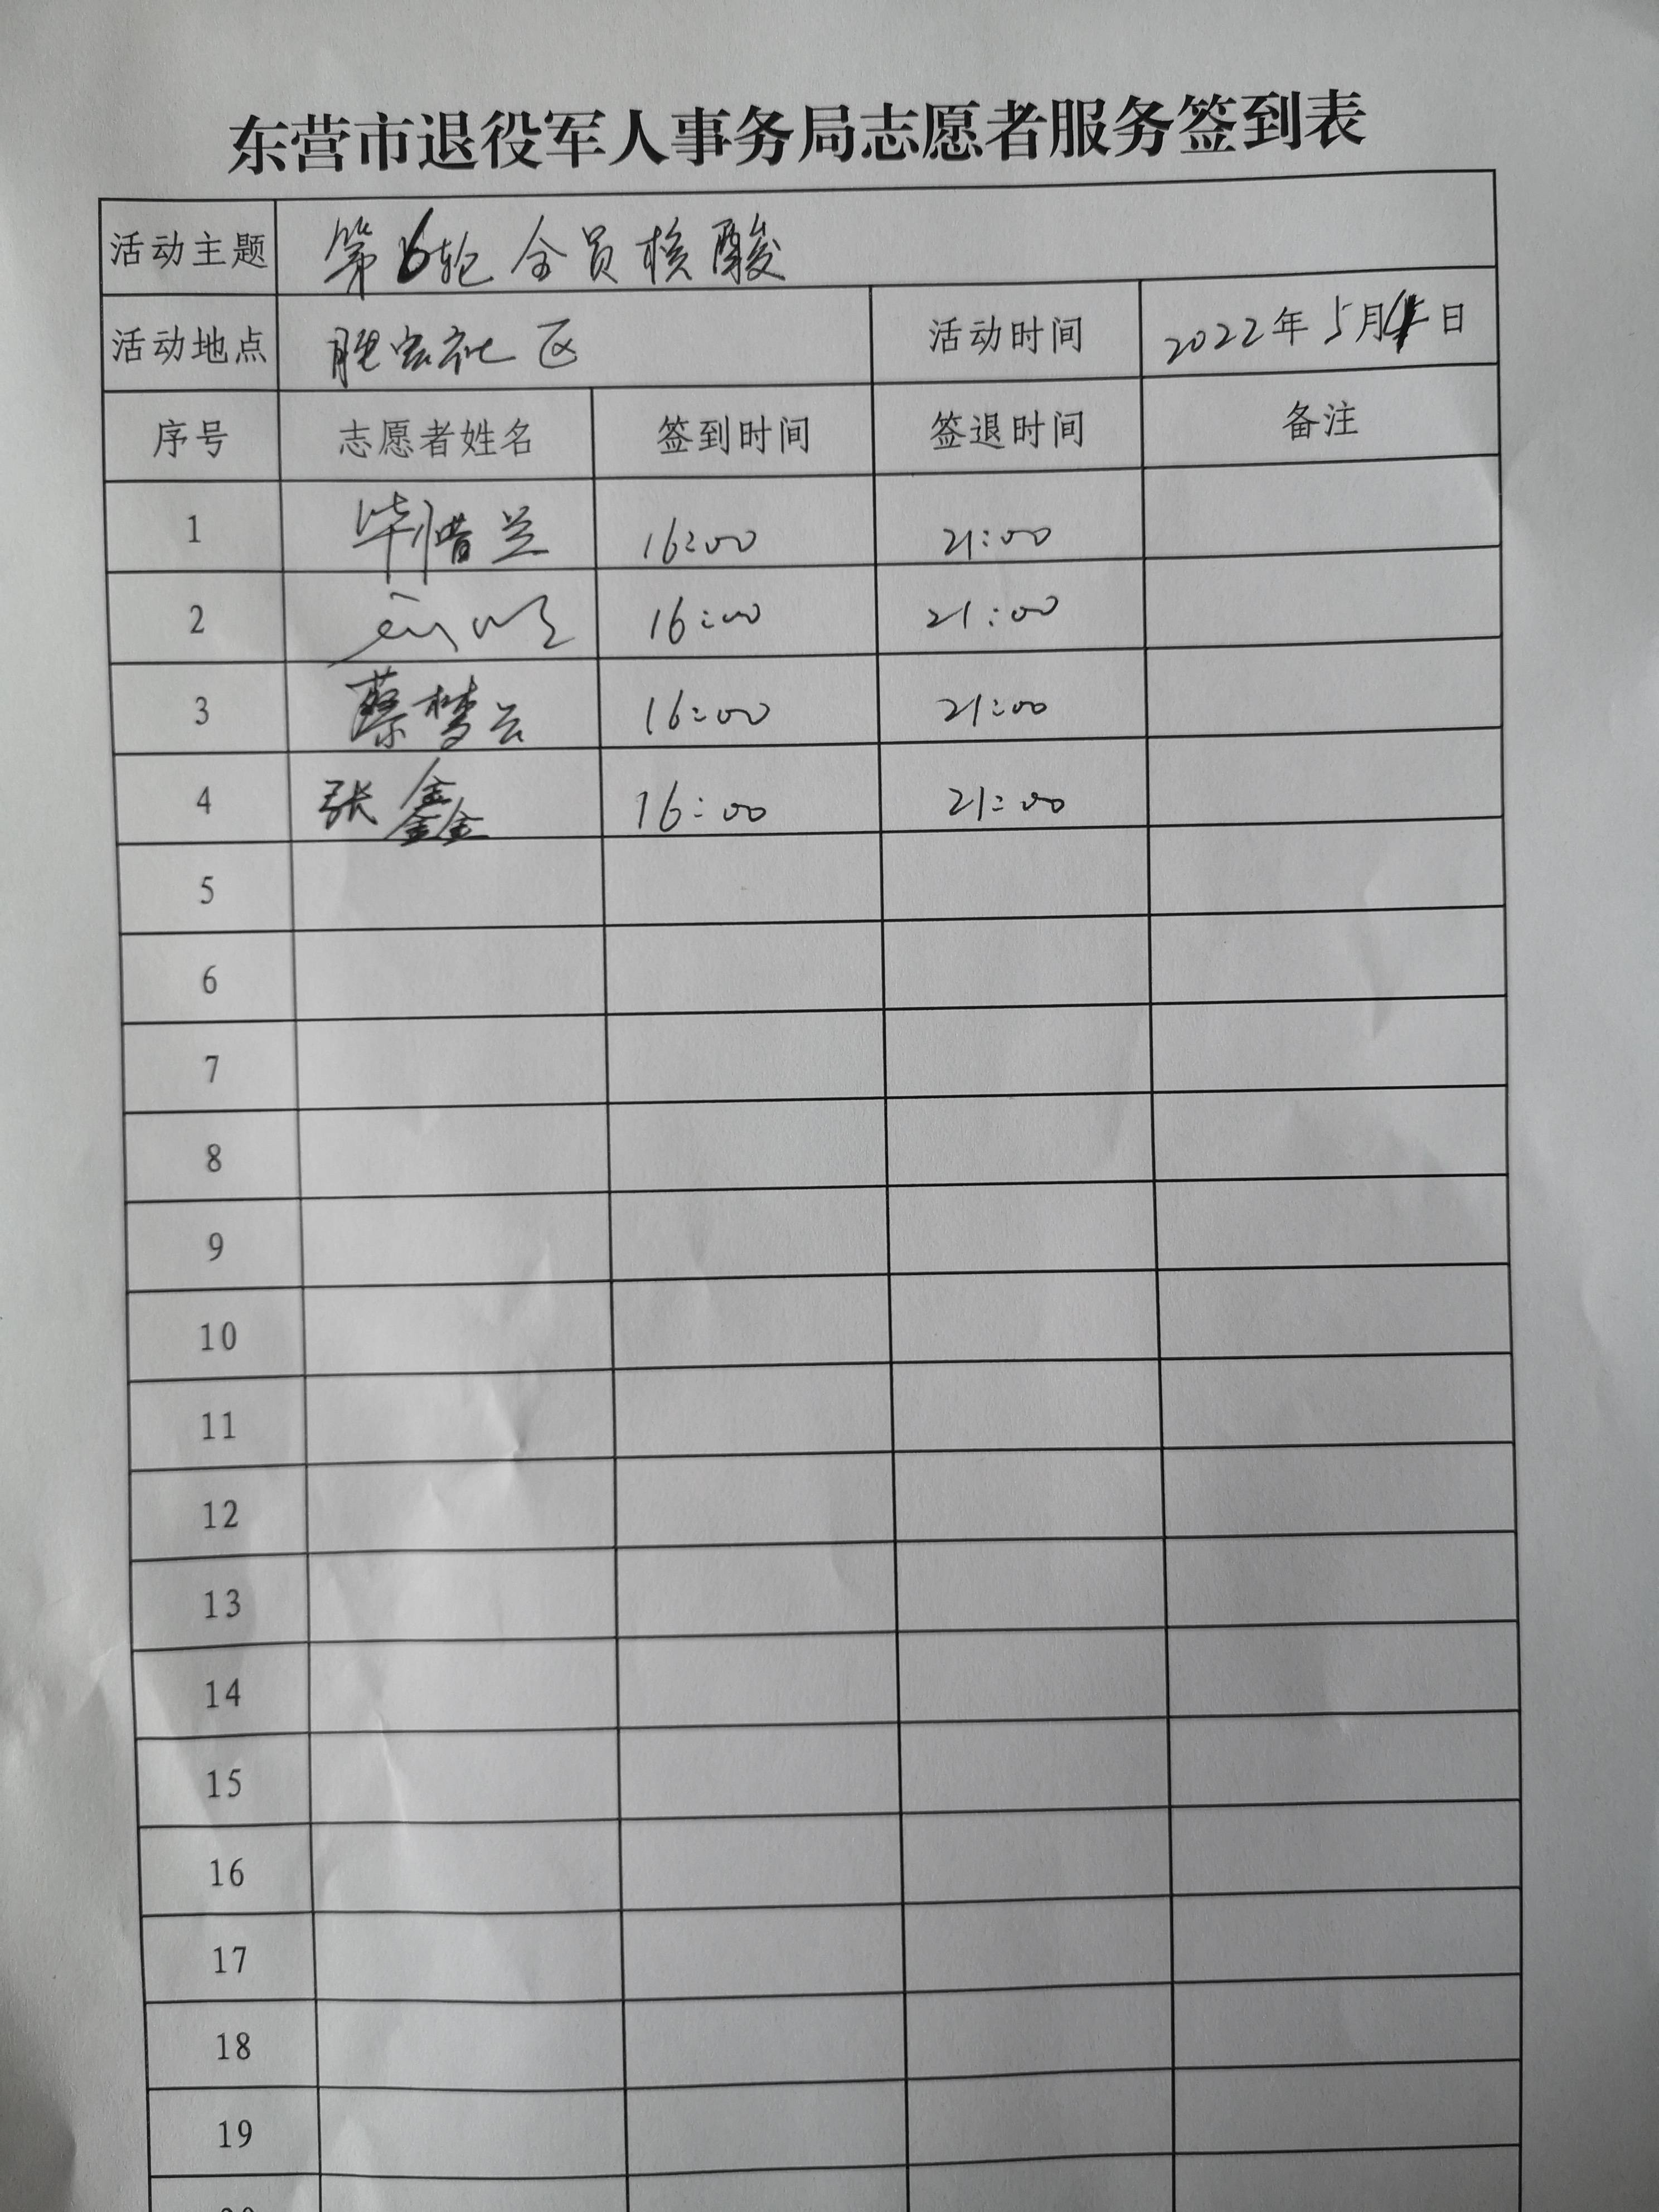 东营市退役军人事务局志愿者服务签到表
活动主题 第6轮全员核酸
活动地点 社区 活动时间 2022年5月 日
序号 志愿者姓名 签到时间 签退时间 备注
1 毕惜兰 16:00 21:00
2 16:00 21:00
3 蔡梦云 16:00 21:00
4 张鑫 16:00 21:00
5
6
7
8
9
10
11
12
13
14
15
16
17
18
19